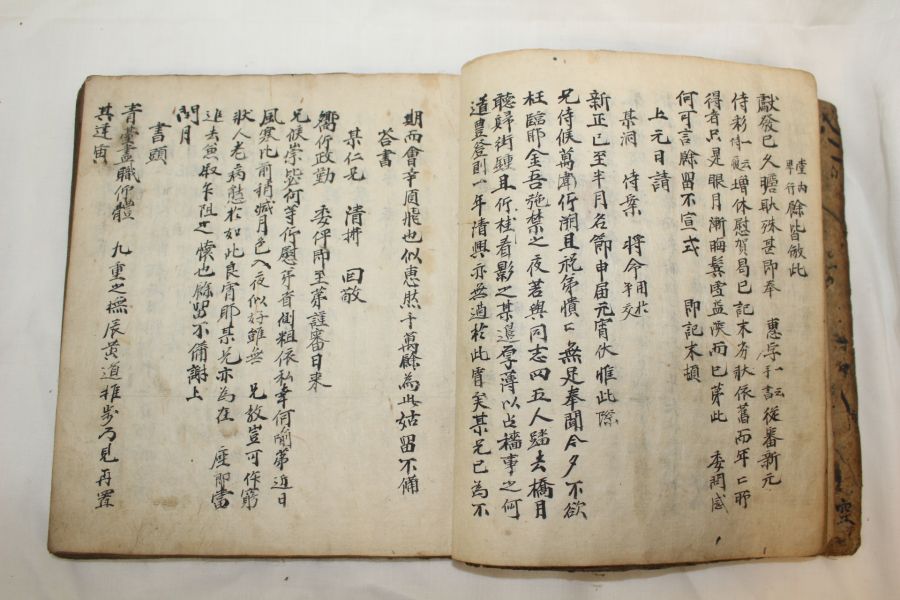 堂內
早行 餘皆倣此
獻發已久瞻耿殊甚即奉 惠字手書一云從審新元
侍彩侍候一云增休慰賀曷已記末劣狀依舊而年二耶
得者只是眼月漸晦鬢雪益深而已第此 委問感
何可言餘留不宣式 即記末頓
上元日請
某洞 侍案 將命用於平交
新正已至半月名節申屆元宵伏惟此際
兄侍候萬衛仰溯且祝弟憒二無足奉聞今夕不欲
枉臨耶金吾弛禁之夜若與同志四五人踏去橋月
聽歸街鍾且竹桂看影之某還孚薄以占穡事之何
道豊登則一年清興亦無過於此宵矣某兄已為不
期而會幸須飛也似惠然千萬餘為此姑留不備
答書
某仁兄 清拚 回敬
嚮仰政勤 委伻即至第謹審日來
兄候崇毖何等仰慰弟省側粗依私幸何喻第近日
風寒比前稍減月色入夜似好雖無 兄教豈可作窮
狀人老病愁於如此良宵耶某兄亦為在 座即當
進去魚叔乍阻之懷也餘留不備謝上
問月
書頭
青臺盡職仰體 九重之撫辰黃道推步乃見再
其達宙